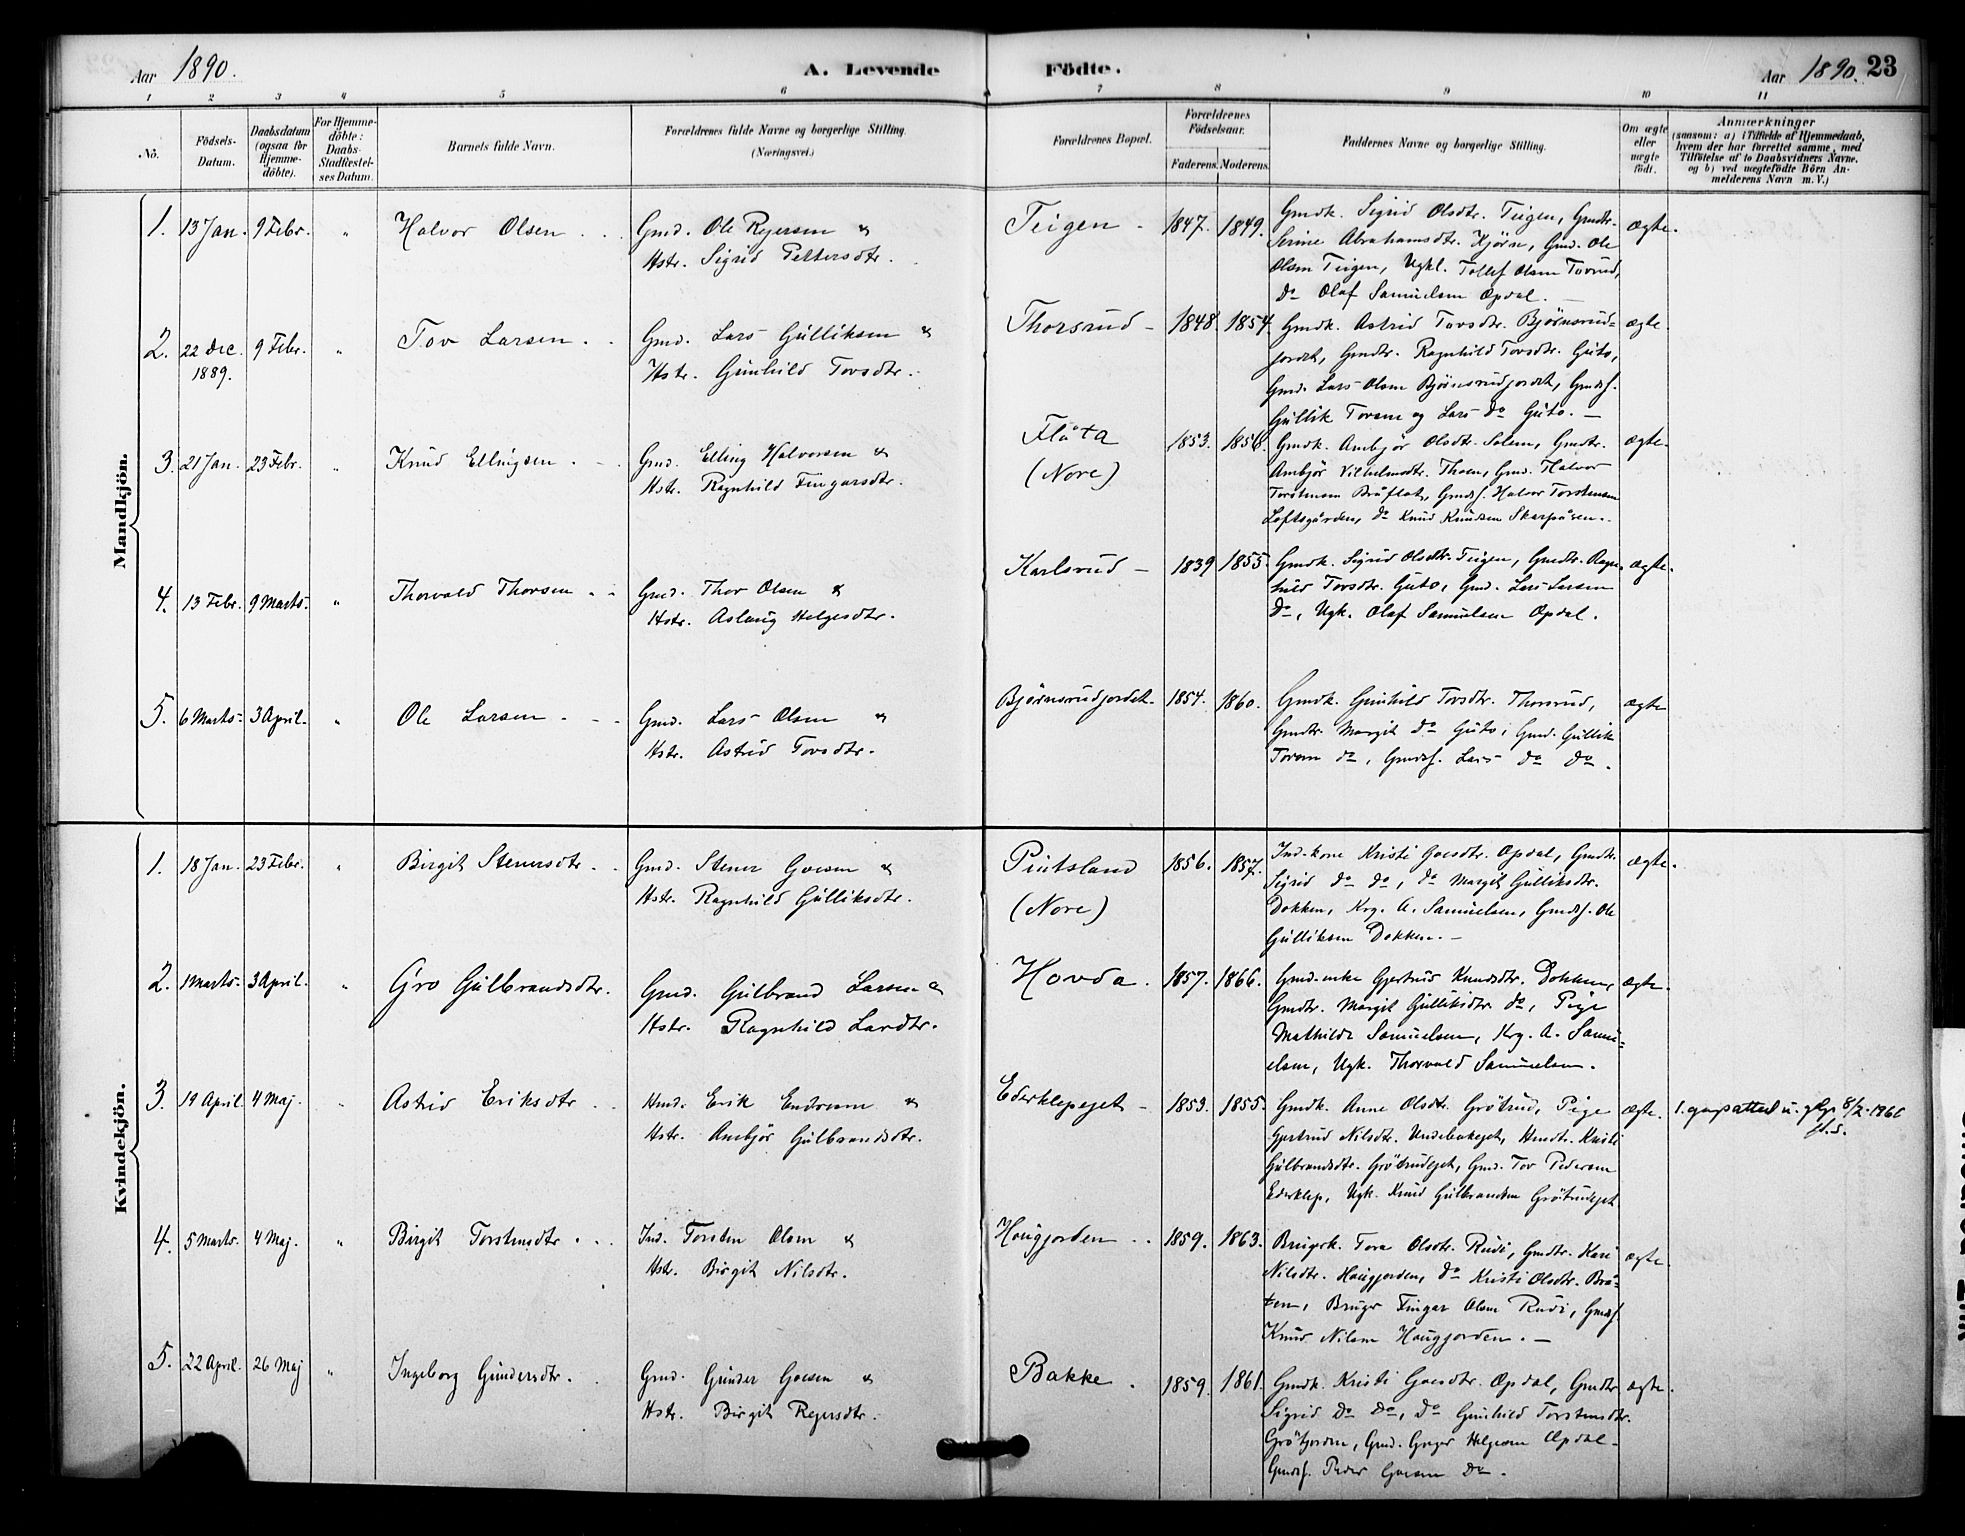 Aar 1890.
A. Levende Födte.
Aar 1890. 23
1 2 3 4 5 6 7 8 9 10 11
No.
Födsels-Datum.
Daabsdatum (ogsaa for Hjemmedöbte).
For Hjemmedöbte: Daabs-Stadfæstelses Datum.
Barnets fulde Navn.
Forældrenes fulde Navne og borgerlige Stilling. (Næringsvei.)
Forældrenes Bopæl.
Forældrenes Födselsaar.
Faderens. Moderens.
Faddernes Navne og borgerlige Stilling.
Om ægte eller uægte födt.
Anmærkninger
(saasom: a) i Tilfælde af Hjemmedaab, hvem der har forrettet samme, med Tilföielse af to Daabsvidners Navne, og b) ved uægtefödte Börn Anmelderens Navn m.V.)
Mandkjön.
1. 13 Jan. 9 Febr. " Halvor Olsen Gmd. Ole Rejersen & Teigen 1847. 1849. Gmdk. Sigrid Olsdtr. Teigen, Gmdtr. ægte.
Hstr. Sigrid Pettersdtr. Serine Abrahamsdtr. Kjörn, Gmd. Ole
Olsen Teigen, Ugkl. Tollef Olsen Tovrud,
do Olaf Samuelsen Opdal.
2. 22 Dec. 1889. 9 Febr. " Tov Larsen Gmd. Lars Gulliksen & Thorsrud 1848 1854. Gmdk. Astrid Tovsdtr. Bjørnsrud- ægte.
Hstr. Gunhild Tovsdtr. jordet, Gmdtr. Ragnhild Tovsdtr. Guto,
Gmd. Lars Olsen Bjørnsrudjordet, Gmds.
Gullik Tovsen og Lars do Guto.
3. 21 Jan. 23 Febr. " Knud Ellingsen Gmd. Elling Halvorsen & Flåta (Nore) 1853. 1856. Gmdk. Ambjör Olsdtr. Solem, Gmdtr. ægte.
Hstr. Ragnhild Fingarsdtr. Ambjör Vilhelmsdtr. Thoen, Gmd. Halvor
Torstensen Bråflat, Gmds. Halvor Torstensen
Loftsgården, do Knud Knudsen Skarpåsen.
4. 13 Febr. 9 Marts. " Thorvald Thorsen Gmd. Thor Olsen & Karlsrud 1839 1855. Gmdk. Sigrid Olsdtr. Teigen, Gmdtr. Ragn- ægte.
Hstr. Aslaug Helgesdtr. hild Tovsdtr. Guto, Gmd. Lars Larsen
do, Ugk. Olaf Samuelsen Opdal.
5. 6 Marts. 3 April. " Ole Larsen Gmd. Lars Olsen & Bjørnsrudjordet. 1854. 1860. Gmdk. Gunhild Tovsdtr. Thorsrud, ægte
Hstr. Astrid Tovsdtr. Gmdtr. Margit do Guto, Gmd. Gullik
Tovsen do, Gmds. Lars do do.
Kvindekjön.
1. 18 Jan. 23 Febr. " Birgit Stenersdtr. Gmd. Stener Goesen & (Nore) 1856. 1857. Ind. kone Kristi Goesdtr. Opdal, Gmdtr. ægte.
Hstr. Ragnhild Gulliksdtr. Sigrid do do, do Margit Gulliksdtr.
Dokken, Krg. A. Samuelsen, Gmds. Ole
Gulliksen Dokken.
2. 1 Marts. 3 April. " Gro Gulbrandsdtr. Gmd. Gulbrand Larsen & Hovda. 1857. 1866. Gmd. enke Gjertrud Knudsdtr. Dokken, ægte.
Hstr. Ragnhild Larsdtr. Gmdtr. Margit Gulliksdtr do, Pige
Mathilde Samuelsen, Krg. A. Samu-
elsen, Ugk. Thorvald Samuelsen.
3. 19 April. 4 Maj. Astrid Eriksdtr Hmd. Erik Endresen & Ederklepejet 1853. 1855. Gmdk. Anne Olsdtr. Grötrud, Pige ægte.
Hstr. Ambjör Gulbrandsdtr. Gjertrud Nilsdtr. Hmdtr. Kristi
Gulbrandsdtr. Grötrudejet, Gmd. Tov Pedersen
Ederklep, Ugk. Knud Gulbrandsen Grötrudejet
4. 5 Marts. 4 Maj. " Birgit Torstensdtr. Ind. Torsten Olsen & Haugjorden 1859. 1863. Brugerk. Tora Olsdtr. Rudi, Gmdtr. Kari ægte.
Hstr. Birgit Nilsdtr. Nilsdtr. Haugjorden, do Kristi Olsdtr. Brå-
ten, Bruger Fingar Olsen Rudi, Gmds.
Knud Nilsen Haugjorden.
5. 22 April. 26 Maj " Ingeborg Gundersdtr. Gmd. Gunder Goesen & Bakke. 1859. 1861. Gmdk. Kristi Goesdtr. Opdal, Gmdtr ægte.
Hstr. Birgit Rejersdtr. Sigrid do do, do Gunhild Torstensdtr.
Grötjorden, Gmd. Helgesen Opdal
Gmds. Peder Goesen do.